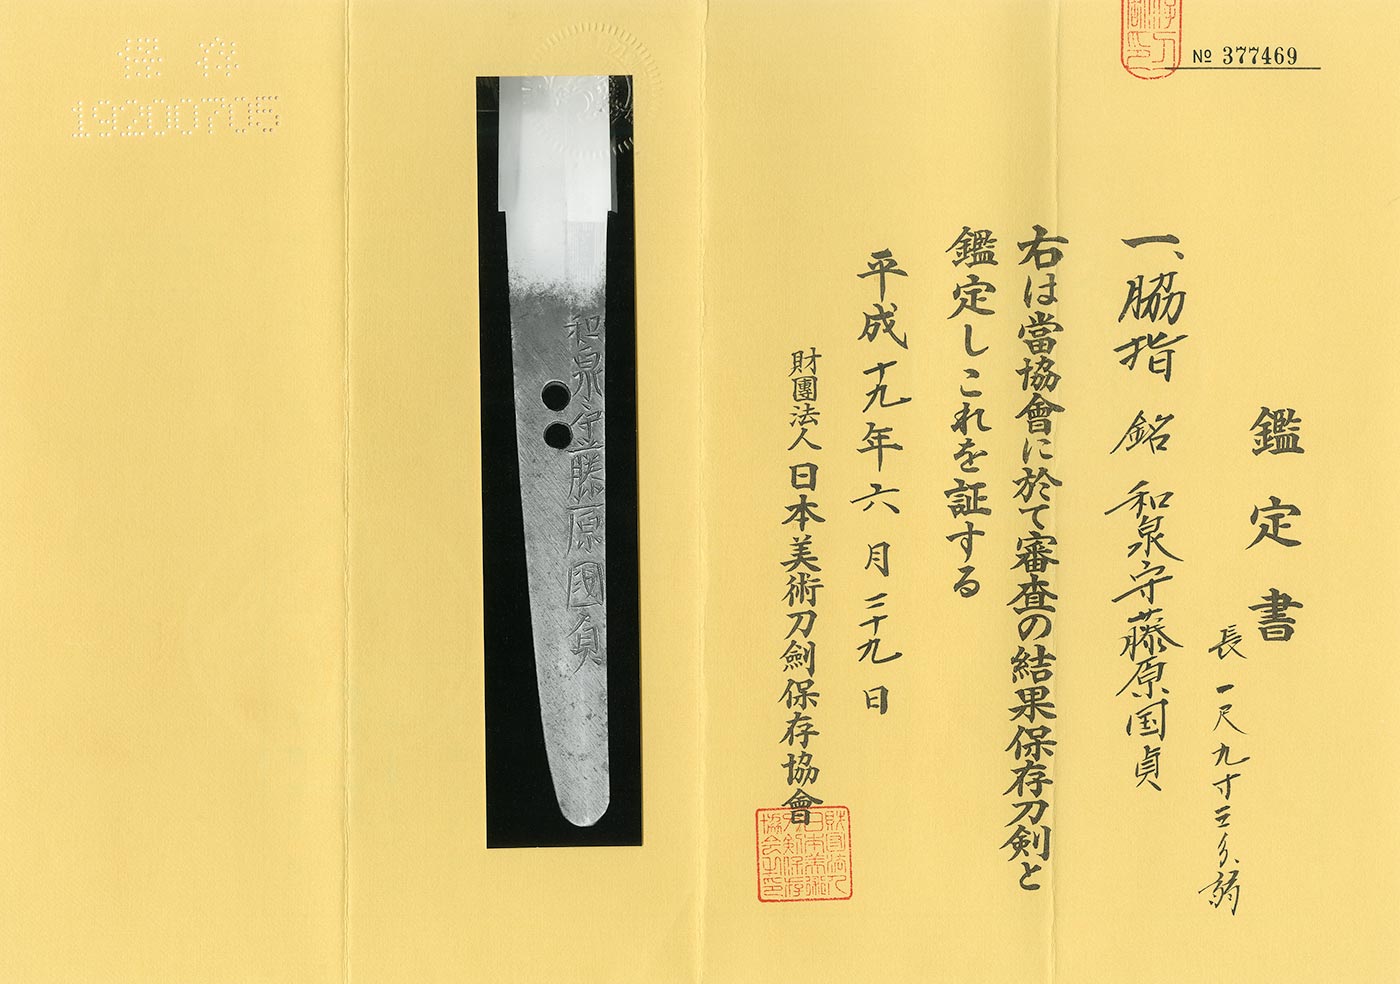 № 377469
鑑定書
長 一尺九寸三分、弱
一、脇指 銘 和泉守藤原国貞
右は當協會に於て審査の結果保存刀剣と
鑑定しこれを証する
平成十九年六月二十九日
財團法人日本美術刀劍保存協會
和泉守藤原國貞
保存
19200705